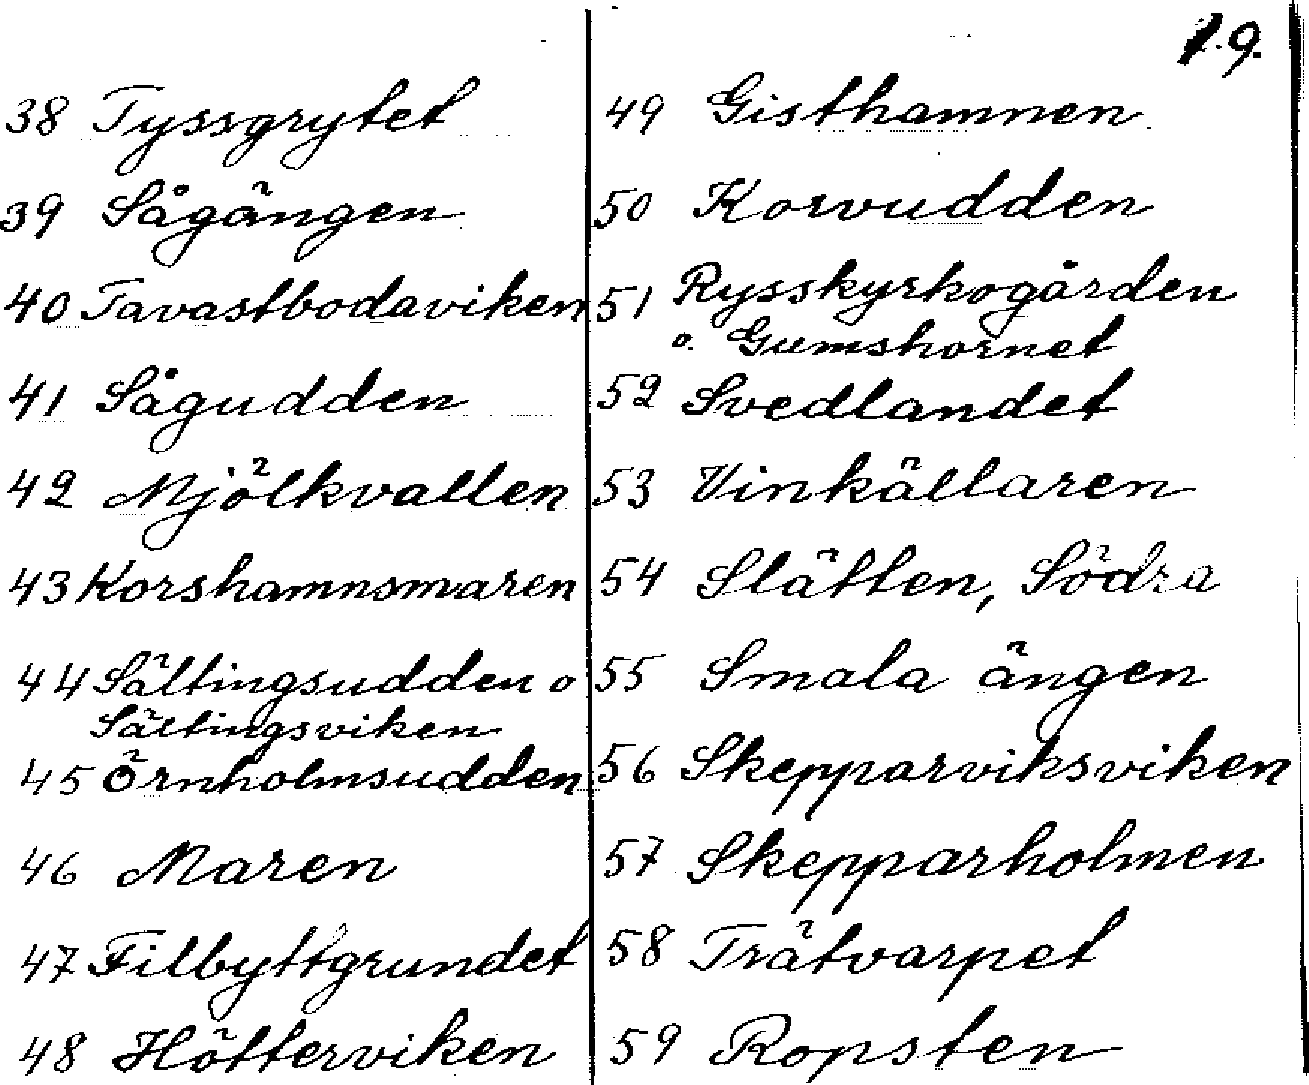 1.9.
38 Tyssgrytet
39 Sågängen
40 Tavastbodaviken
41 Sågudden
42 Mjölkvallen
43 Korshamnsmaren
44 Sältingsudden o
Sältingsviken
45 Örnholmsudden
46 Maren
47 Filbyttgrundet
48 Hötterviken
49 Gisthamnen
50 Korvudden
51 Rysskyrkogården
o. Gumshornet
52 Svedlandet
53 Vinkällaren
54 Slätten, Södra
55 Smala ängen
56 Skepparviksviken
57 Skepparholmen
58 Trätvarpet
59 Ropsten